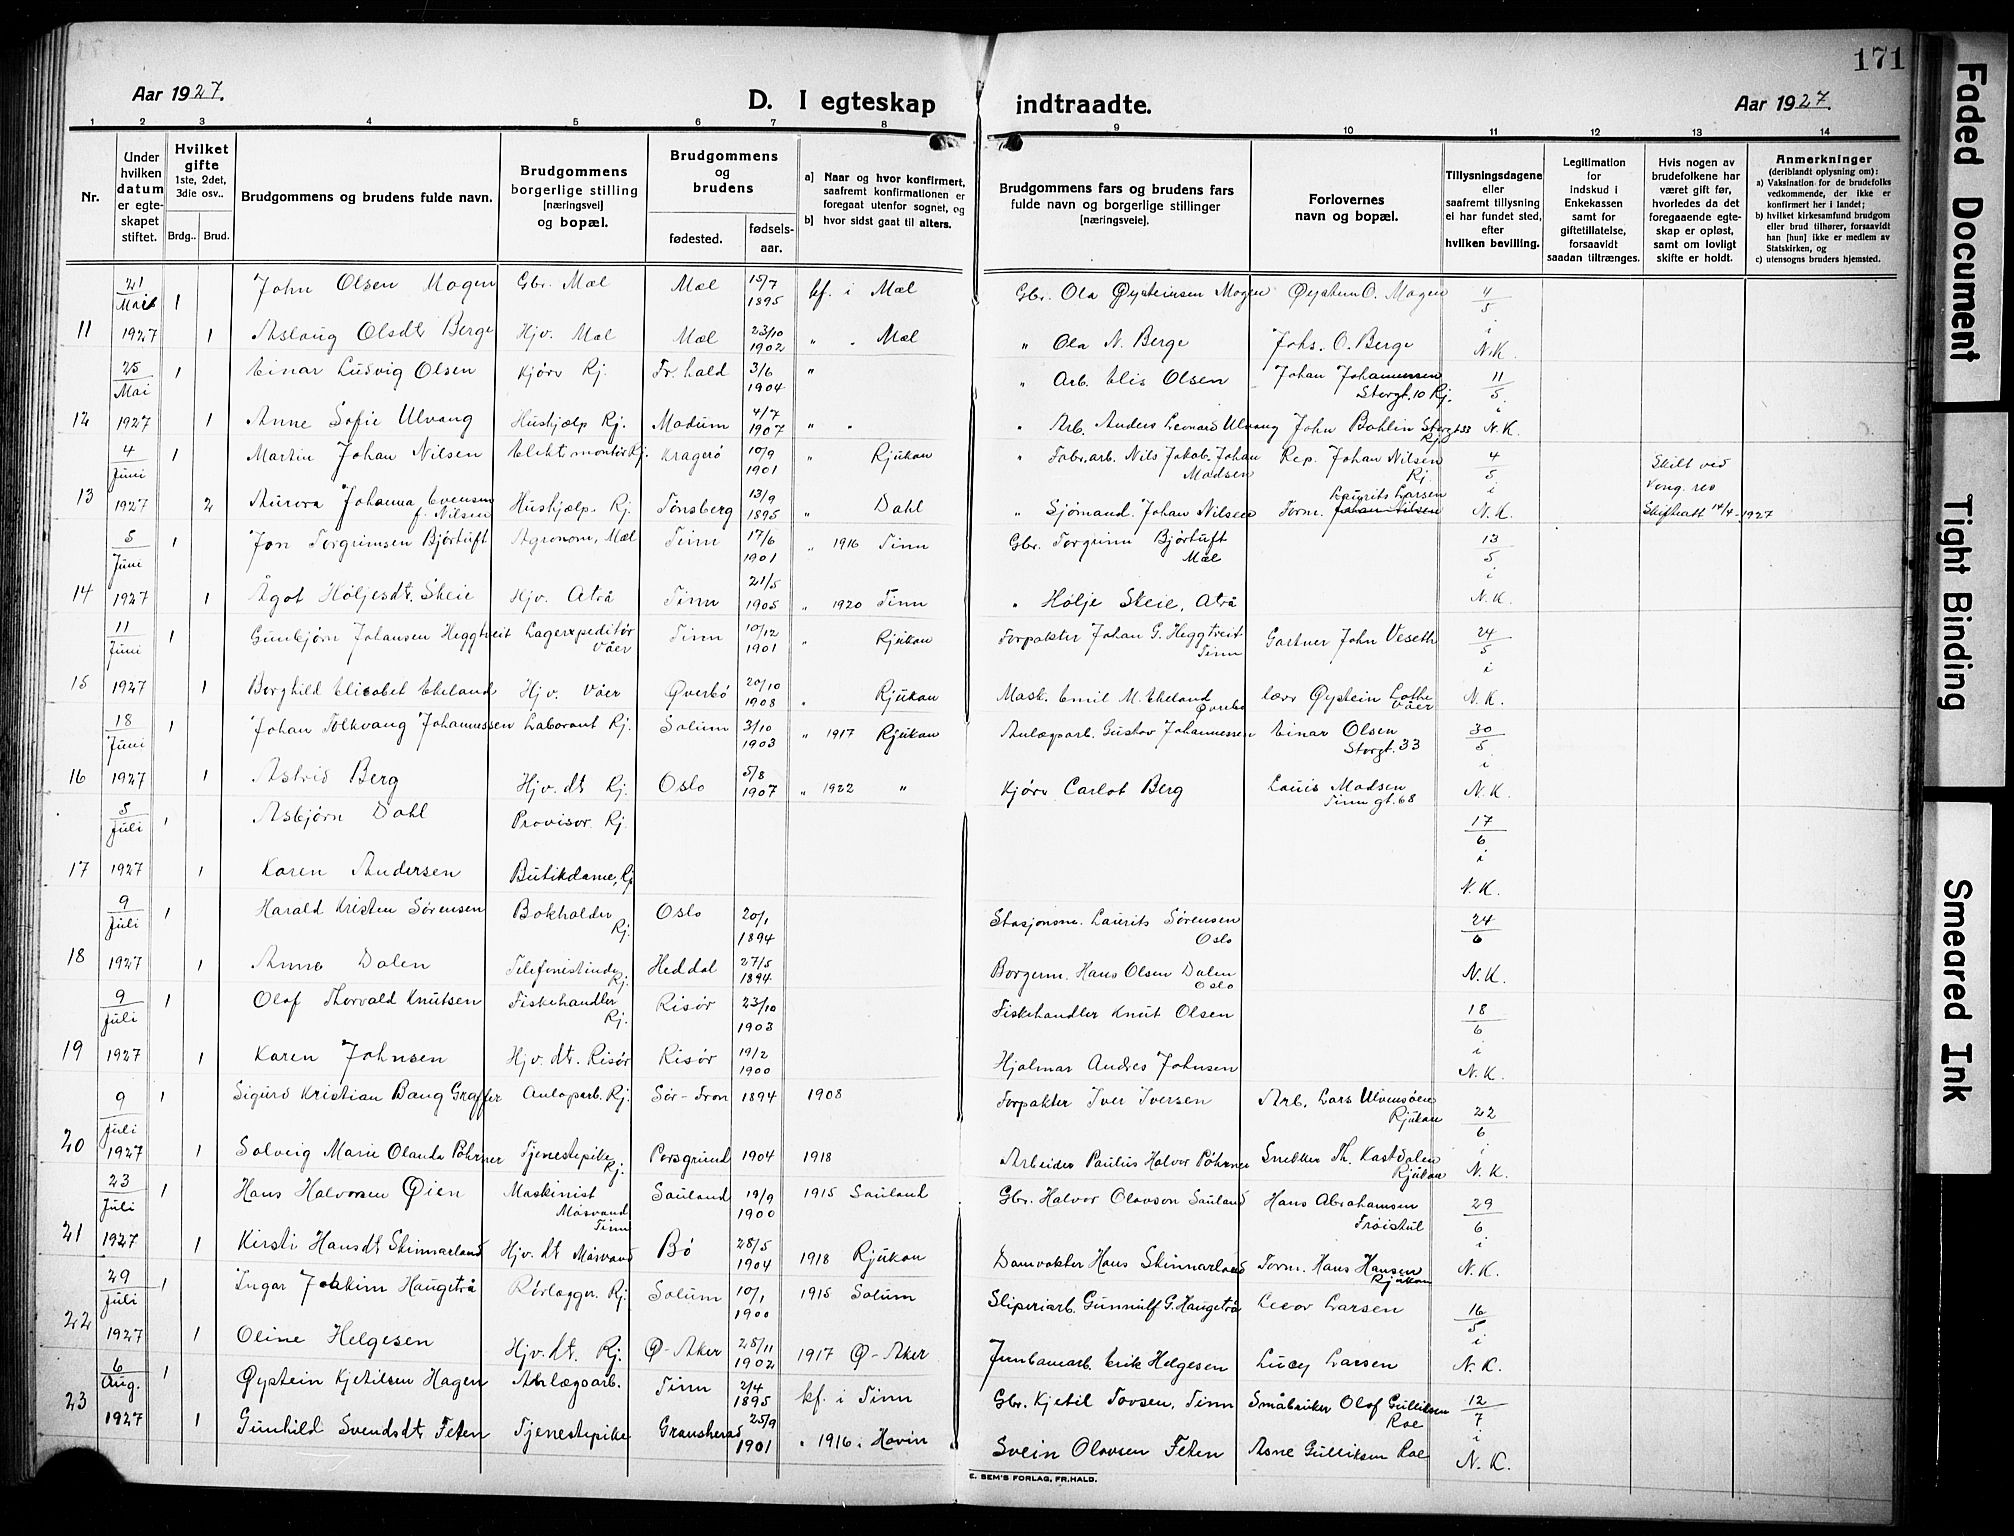 171
Aar 1927.
D. I egteskap indtraadte.
Aar 1927.
1 2 3 4 5 6 7 8 9 10 11 12 13 14
Nr.
Under hvilken datum er egteskapet stiftet.
Hvilket gifte 1ste, 2det, 3die osv..
Brdg.. Brud.
Brudgommens og brudens fulde navn.
Brudgommens borgerlige stilling [næringsvei] og bopæl.
Brudgommens og brudens
fødested.
fødsels-aar.
a) Naar og hvor konfirmert, saafremt konfirmationen er foregaat utenfor sognet, og
b) hvor sidst gaat til alters.
Brudgommens fars og brudens fars fulde navn og borgerlige stillinger [næringsveie].
Forlovernes navn og bopæl.
Tillysningsdagene eller saafremt tillysning ei har fundet sted, efter hvilken bevilling.
Legitimation for indskud i Enkekassen samt for giftetillatelse, forsaavidt saadan tiltrænges.
Hvis nogen av brudefolkene har været gift før, hvorledes da det foregaaende egteskap er opløst, samt om lovligt skifte er holdt.
Anmerkninger (deriblandt oplysning om):
a) Vaksination for de brudefolks vedkommende, der ikke er konfirmert her i landet;
b) hvilket kirkesamfund brudgom eller brud tilhører, forsaavidt han [hun] ikke er medlem av Statskirken, og
c) utensogns bruders hjemsted.
21/Mai 1 John Olsen Mogen Gbr. Mæl Mæl 15/7 1895 kf. i Mæl Gbr. Ola Øysteinsen Mogen Øystein O. Mogen 4/5 i
11 1927 1 Aslaug Olsdt Berge Hjv. Mæl Mæl 23/10 1902 " " Mæl " Ola N. Berge Johs. O. Berge N.K.
25/Mai 1 Einar Ludvig Olsen Kjørv Rj. Fr.hald 3/6 1904 " " Arb. Elis Olsen Johan Johannessen Storgt. 10 Rj. 11/5 i
12 1927 1 Anne Sofie Ulvang Hushjælp Rj. Modum 4/7 1907 " " " Arb. Anders Leonard Ulvang John Bohlin Storgt 33 Rj. N.K.
4/Juni 1 Martin Johan Nilsen Elektmontør Rj. Kragerø 10/9 1901 " Rjukan " Fabr.arb. Nils Jakob Johan Madsen Rep. Johan Nilsen Rj. 4/5 i Skilt ved
13 1927 2 Aurora Johanna Evensen f. Nilsen Hushjælp. Rj. Tønsberg 13/9 1895 " Dahl " Sjømand. Johan Nilsen Form. Laurits Larsen Johan Nilsen N.K. Kong. res Skifteatt 14/4-1927
5/Juni 1 Jon Torgrimsen Bjørtuft Agronom, Mæl Tinn 17/6 1901 " 1916 Tinn Gbr. Torgrim Bjørtuft Mæl 13/5 i
14 1927 1 Ågot Høljesdt. Skeie Hjv. Atrå Tinn 21/5 1905 " 1920 Tinn " Hølje Skeie, Atrå N.K.
11/Juni 1 Gunbjørn Johansen Heggtveit Lagerxpeditør Våer Tinn 10/12 1901 " Rjukan Forpakter Johan G. Heggtveit Tinn Gartner John Veseth 24/5 i
15 1927 1 Borghild Elisabet Ekeland Hjv. Våer Øvrebø 20/10 1908 " Rjukan Mask. Emil M. Ekeland Øvrebø Øystein Lothe Våer N.K.
18/Juni 1 Johan Folkvang Johannessen Laborant Rj. Solum 3/10 1903 " 1917 Rjukan Anlægsarb. Gustav Johannessen Einar Olsen Storgt. 33 30/5 i
16 1927 1 Astrid Berg Hjv. dt Rj. Oslo 5/8 1907 " 1922 " Kjørv Carlot Berg Louis Madsen Tinngt. 68 N.K.
5/Juli 1 Asbjørn Dahl Provisor Rj. 17/6 i
17 1927 1 Karen Andersen Butikdame, Rj. N.K.
9/Juli 1 Harald Kristen Sørensen Bokholder Rj. Oslo 20/1 1894 Stasjonsm. Laurits Sørensen Oslo 24/6
18 1927 1 Anna Dalen Telefonistinde Rj. Heddal 27/5 1894 Borgerm. Hans Olsen Dalen Oslo N.K.
9/Juli 1 Olaf Thorvald Knutsen Fiskehandler Rj. Risør 23/10 1903 Fiskehandler Knut Olsen 18/6 i
19 1927 1 Karen Johnsen Hjv. dt. Risør Risør 19/2 1900 Hjalmar Andres Johnsen N.K.
9/Juli 1 Sigurd Kristian Bang Graffer Anlaparb. Rj. Sør-Fron 1894 1908 Forpakter Iver Iversen Arb. Lars Ulvensøen Rjukan 22/6 i
20 1927 1 Solveig Marie Olanda Pöhrner Tjenestepike Rj. Porsgrund 1904 1918 Arbeider Paulus Halvor Pöhrner Snekker Th. Kastdalen Rjukan N.K.
23/Juli 1 Hans Halvorsen Øien Maskinist Møsvand Tinn Sauland 19/9 1900 1915 Sauland Gbr. Halvor Olavson Sauland Hans Abrahamsen Frøistul 29/6 i
21 1927 1 Kirsti Hansdt Skinnarland Hjv. dt Møsvand Bø 28/5 1904 1918 Rjukan Damvokter Hans Skinnarland Form. Hans Hansen Rjukan N.K.
29/Juli 1 Ingar Joakim Haugetrå Rørlægger. Rj. Solum 10/1 1900 1915 Solum Sliperiarb. Gunnulf G. Haugetrå Larsen 16/5 i
22 1927 1 Oline Helgesen Hjv. dt. Rj. Ø-Aker 28/11 1902 1917 Ø-Aker Jernbanearb. Erik Helgesen Lucy Larsen N.K.
6/Aug. 1 Øystein Kjetilsen Hagen Anlægsarb. Tinn 2/4 1895 kf. i Tinn Gbr. Kjetil Tovsen, Tinn Småbruker Olaf Gulliksen Roe 12/7 i
23 1927 1 Gunhild Svendsdt Feten Tjenestepike Gransherad 25/9 1901 " 1916 " Hovin Svein Olavsen Feten Asne Gulliksen Roe N.K.
E. SEM'S FORLAG, FR.HALD.
Faded Document
Tight Binding
Smeared Ink